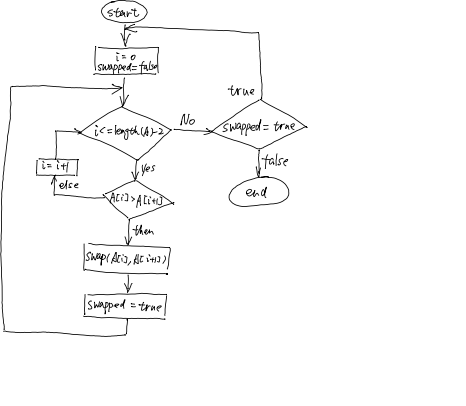 start
i=0
swapped=false
i<=length(A)-2
No
true
swapped=true
false
end
yes
i=i+1
else
A[i]>A[i+1]
then
swap(A[i],A[i+1])
swapped=true